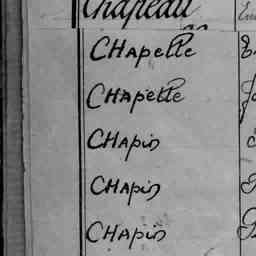 Chapeau
CHApelle
CHApelle
CHApin
CHApin
CHApin